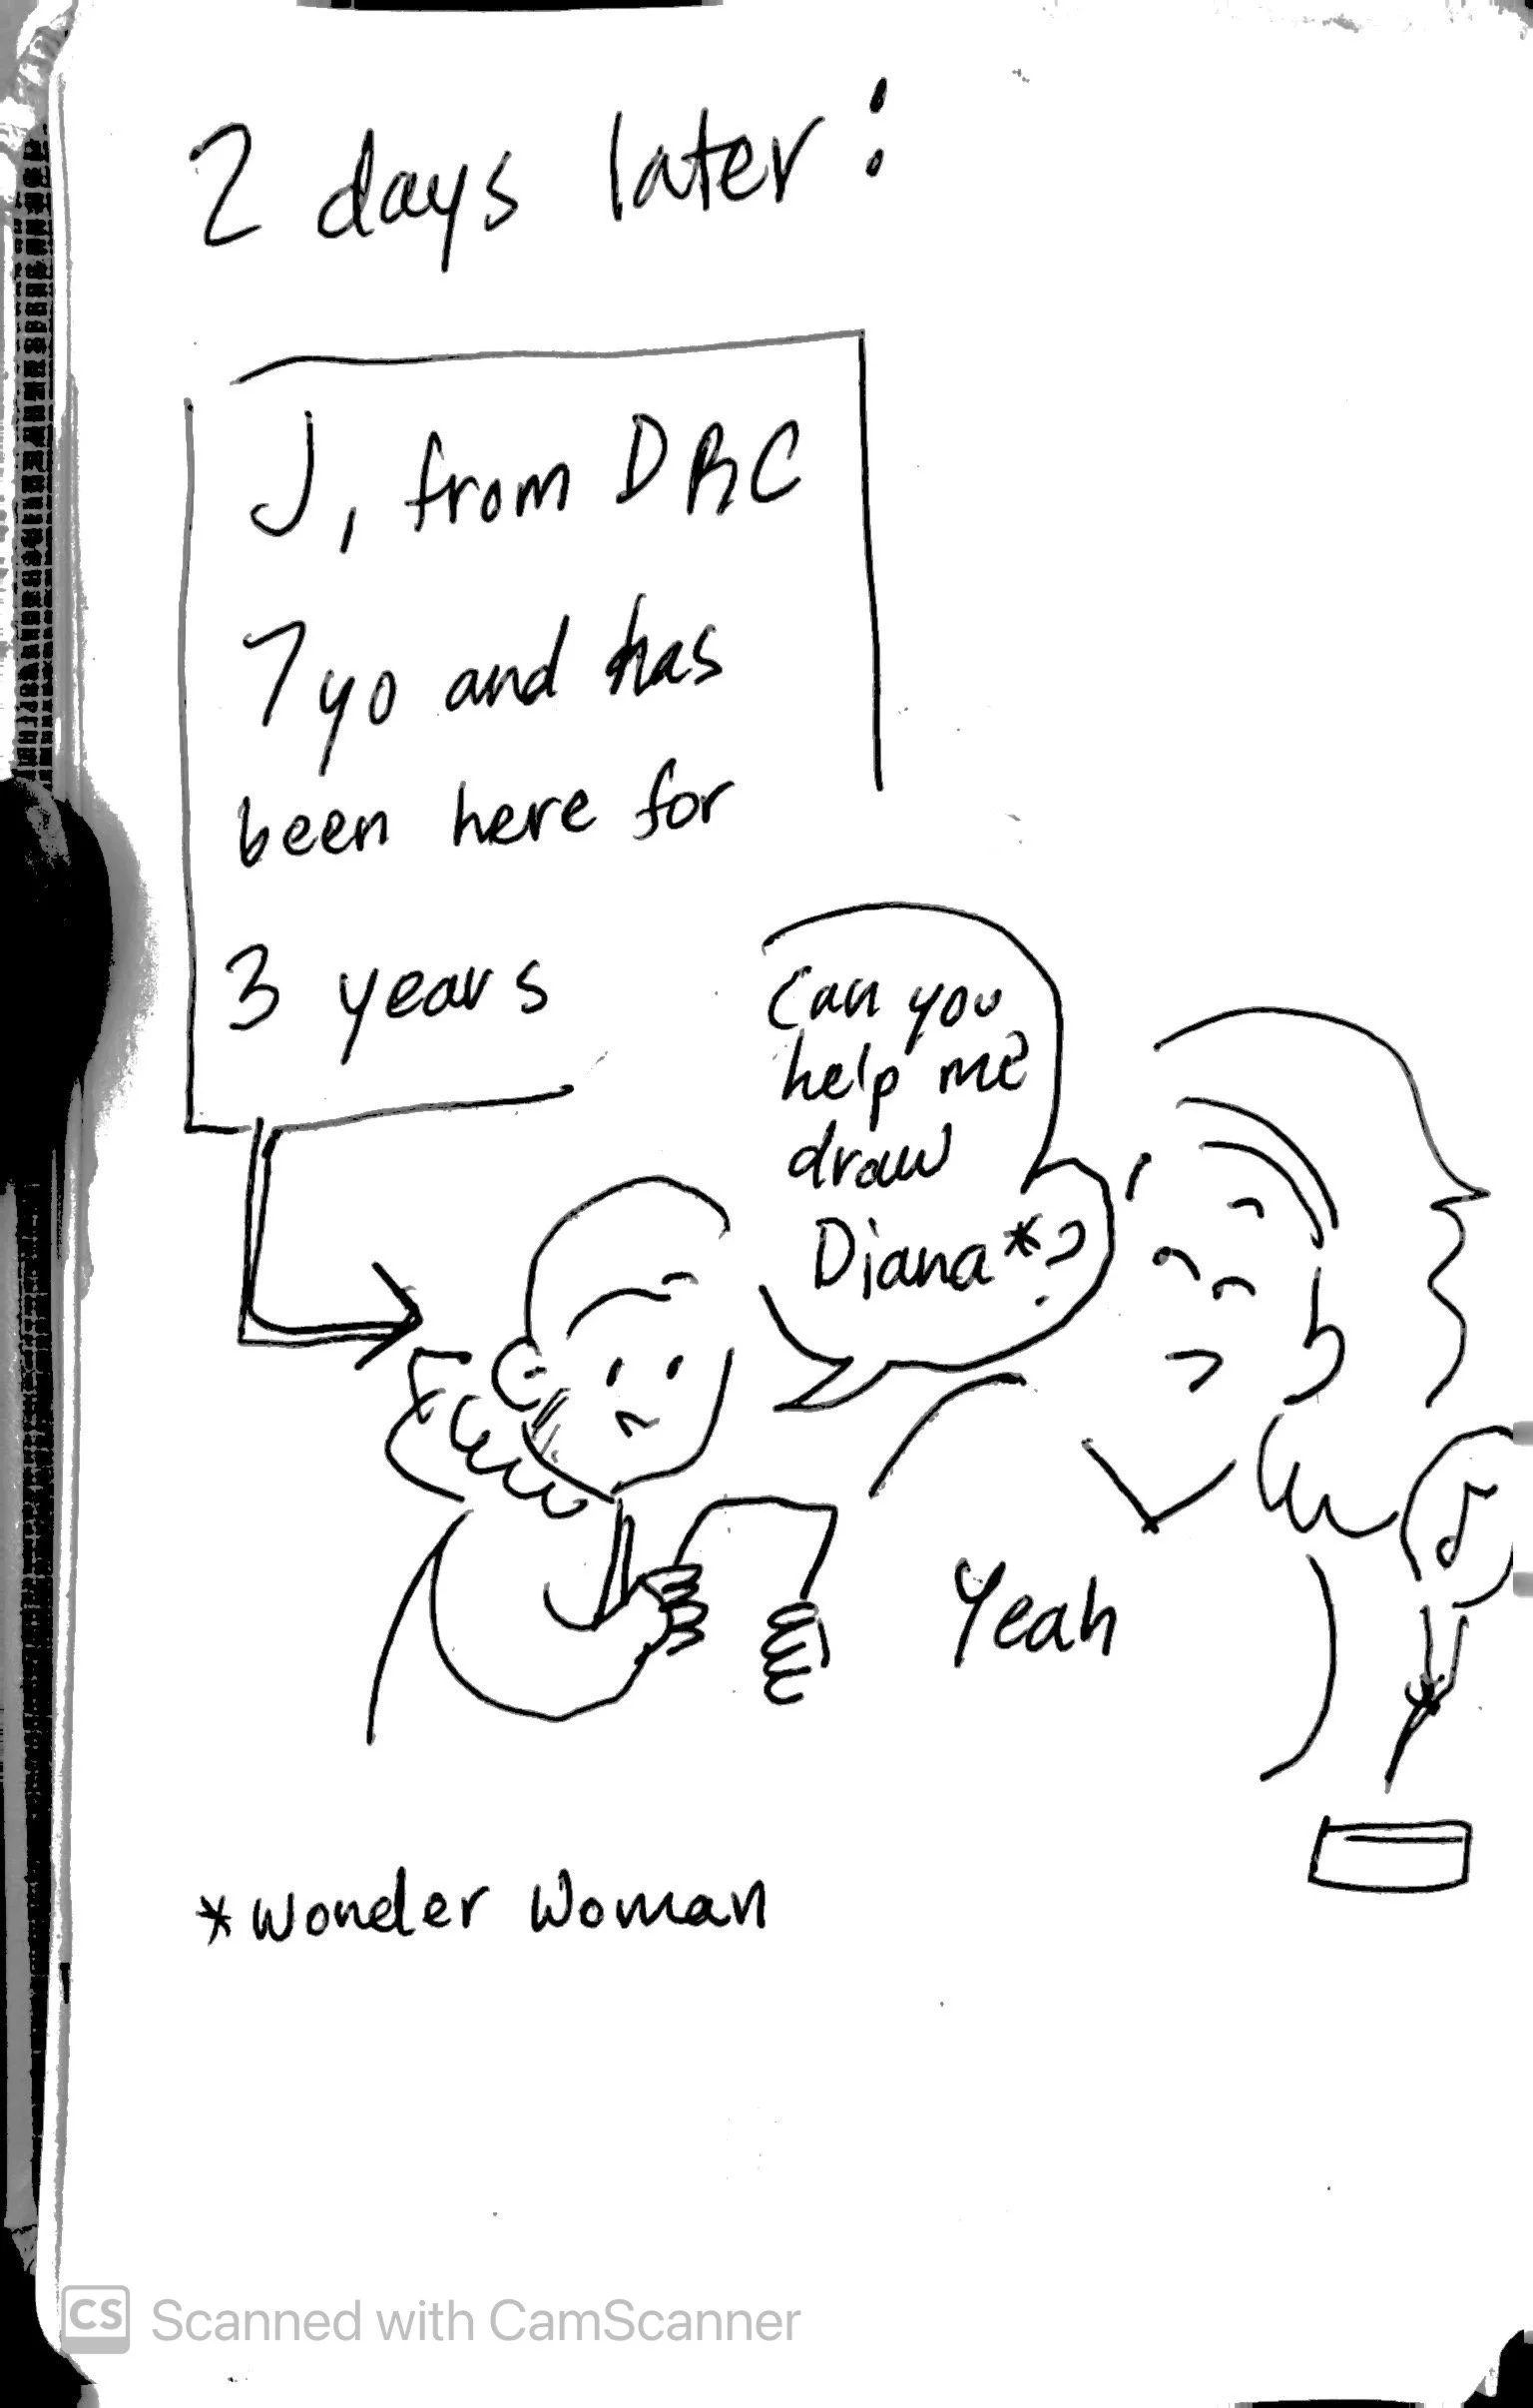 2 days later:
J, from DRC
7yo and has
been here for
3 years
Can you
help me
draw
Diana*?
Yeah
*Wonder Woman
CS Scanned with CamScanner